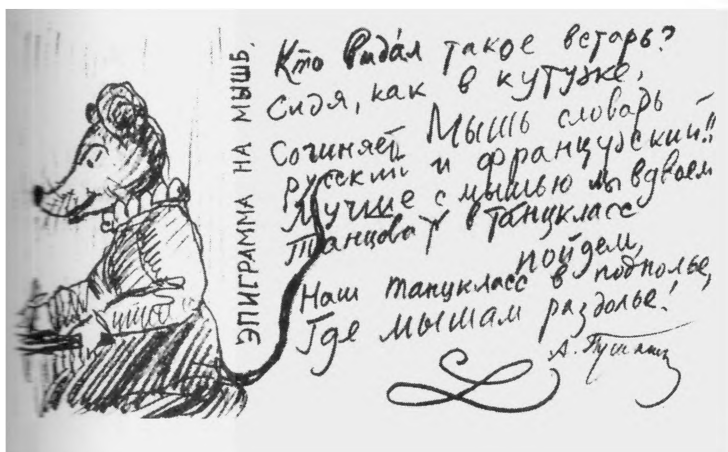 ЭПИГРАММА НА МЫШЬ.
Кто видал такое встарь?
Сидя, как в кутузке,
Сочиняет Мышь словарь
русский и французский!!
Лучше с мышью мы вдвоем
Танцовать в танцкласс
пойдем,
Наш танцкласс в подполье,
Где мышам раздолье!
А. Пушкин